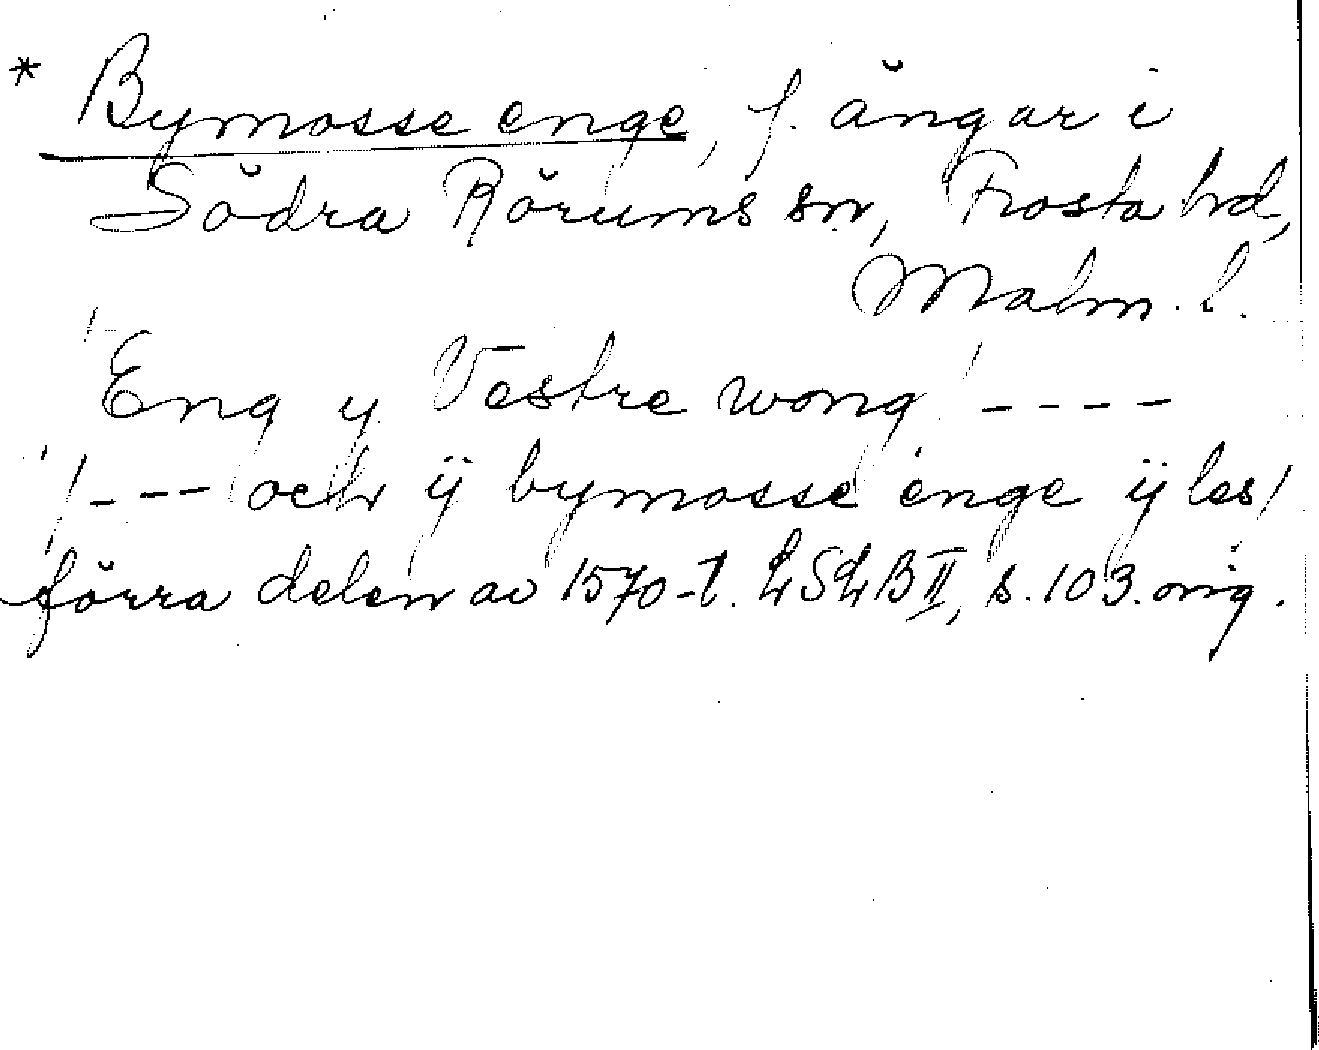 * Bymosse enge, f. ängar i
Södra Rörums sn, Frosta hd,
Malm. l.
"Eng y Vestre wong" ----
"/--- och ÿ bymosse enge ÿ les/
förra delen av 1570-t. LSLB II, s. 103. orig.